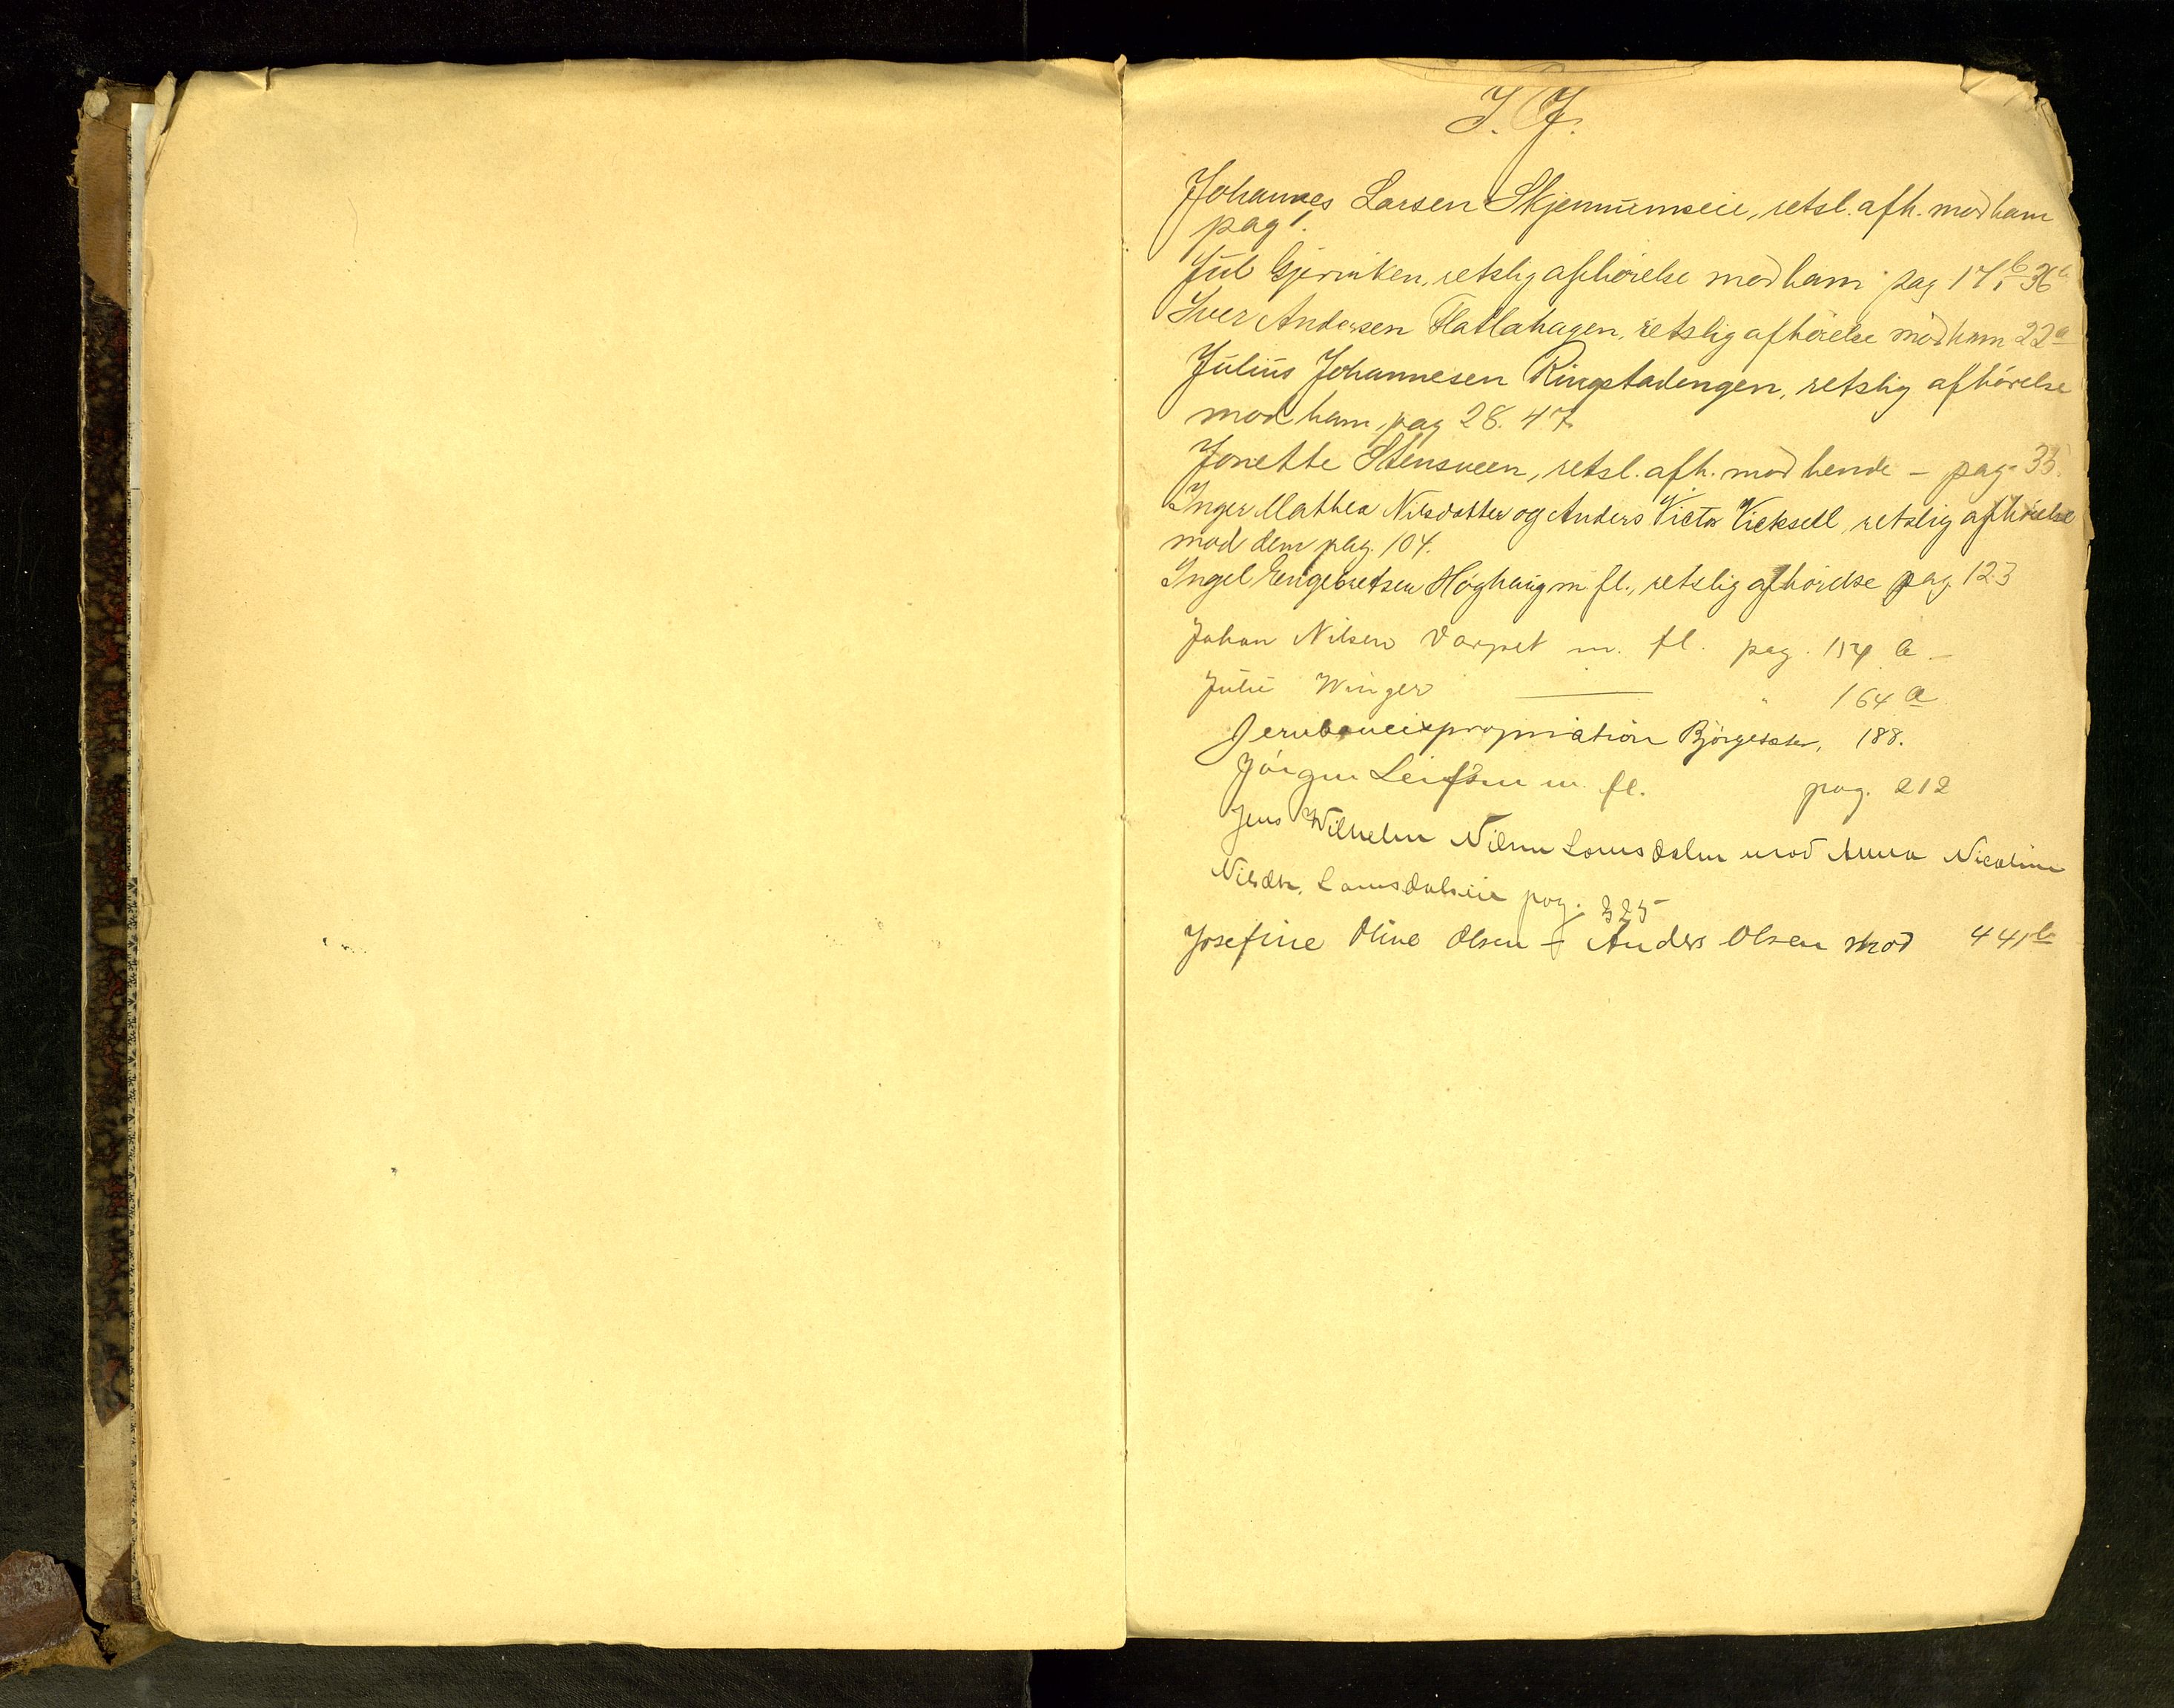 I. J.
Johannes Larsen Skjennumseie, retsl. afh. mod ham
pag 1.
Jul Gjerniken, retslig afhørelse mod ham pag 17b, 36
Iver Andersen Flatlahagen, retslig afhørelse mod ham 22a
Julius Johannesen Ringstadengen, retslig afhørelse
mod ham, pag 28. 47
Jonette Stensveen, retsl. afh. mod hende - pag. 33.
Inger Mathea Nilsdatter og Anders Victor Vicksell, retslig afhørelse
mod dem pag. 104.
Ingel Engebretsen Høghaug m. fl., retslig afhørelse pag 123
Johan Nilsen Varpet m. fl. pag. 154 a -
Julie Winger — " 164 a
Jernbaneexpropriation Bjørgeseter, 188.
Jørgen Leifsen m. fl. pag. 212
Jens Wilhelm Nilsen Lomsdalen mod Anna Nicoline
Nilsdtr. Lomsdalseie pag. 325
Josefine Oline Olsen - Anders Olsen mod 441b